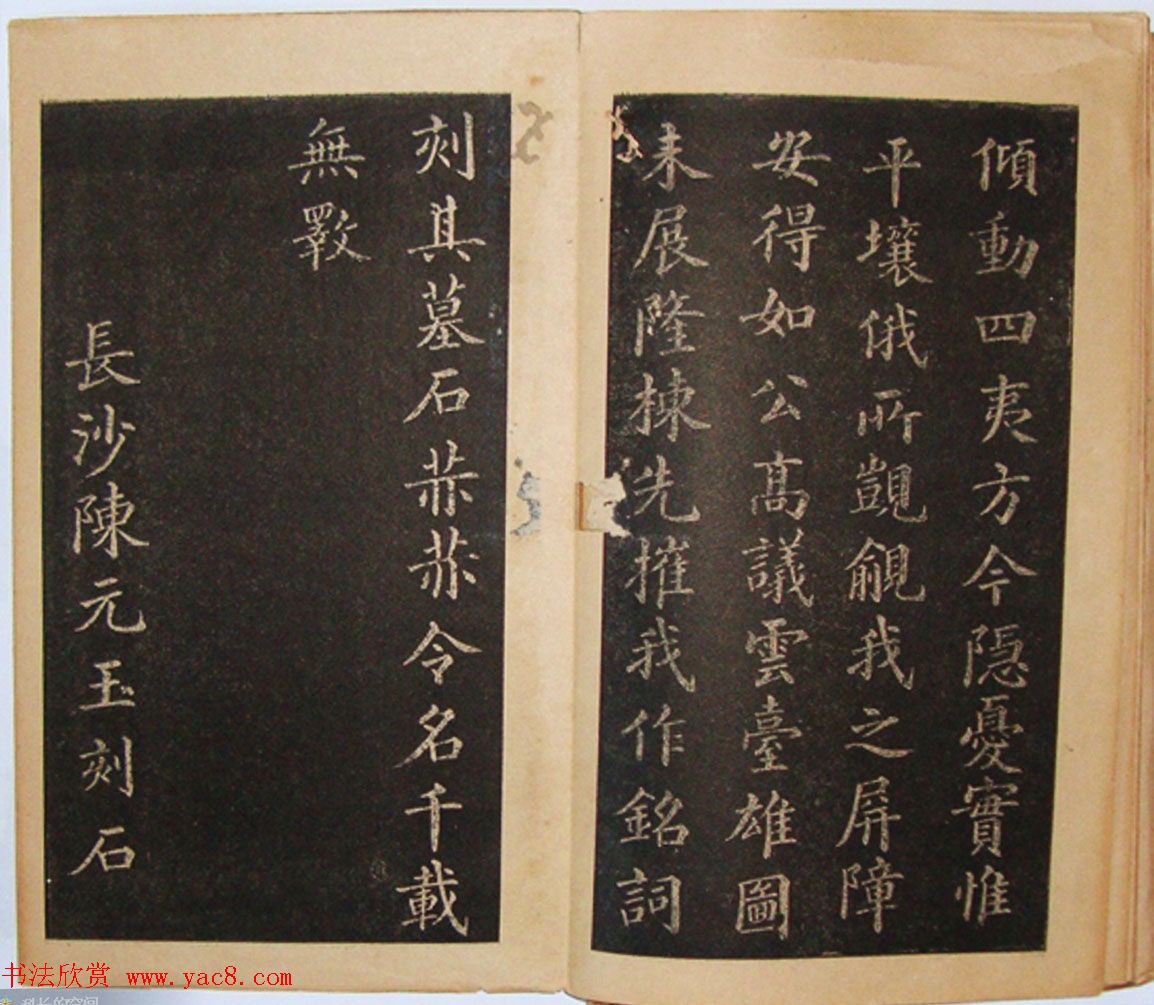 傾動四夷方今隱憂實惟
平壤俄所覬覦我之屏障
安得如公高議雲臺雄圖
未展隆棟先摧我作銘詞
刻其墓石赫赫令名千載
無斁
長沙陳元玉刻石
书法欣赏 www.yac8.com